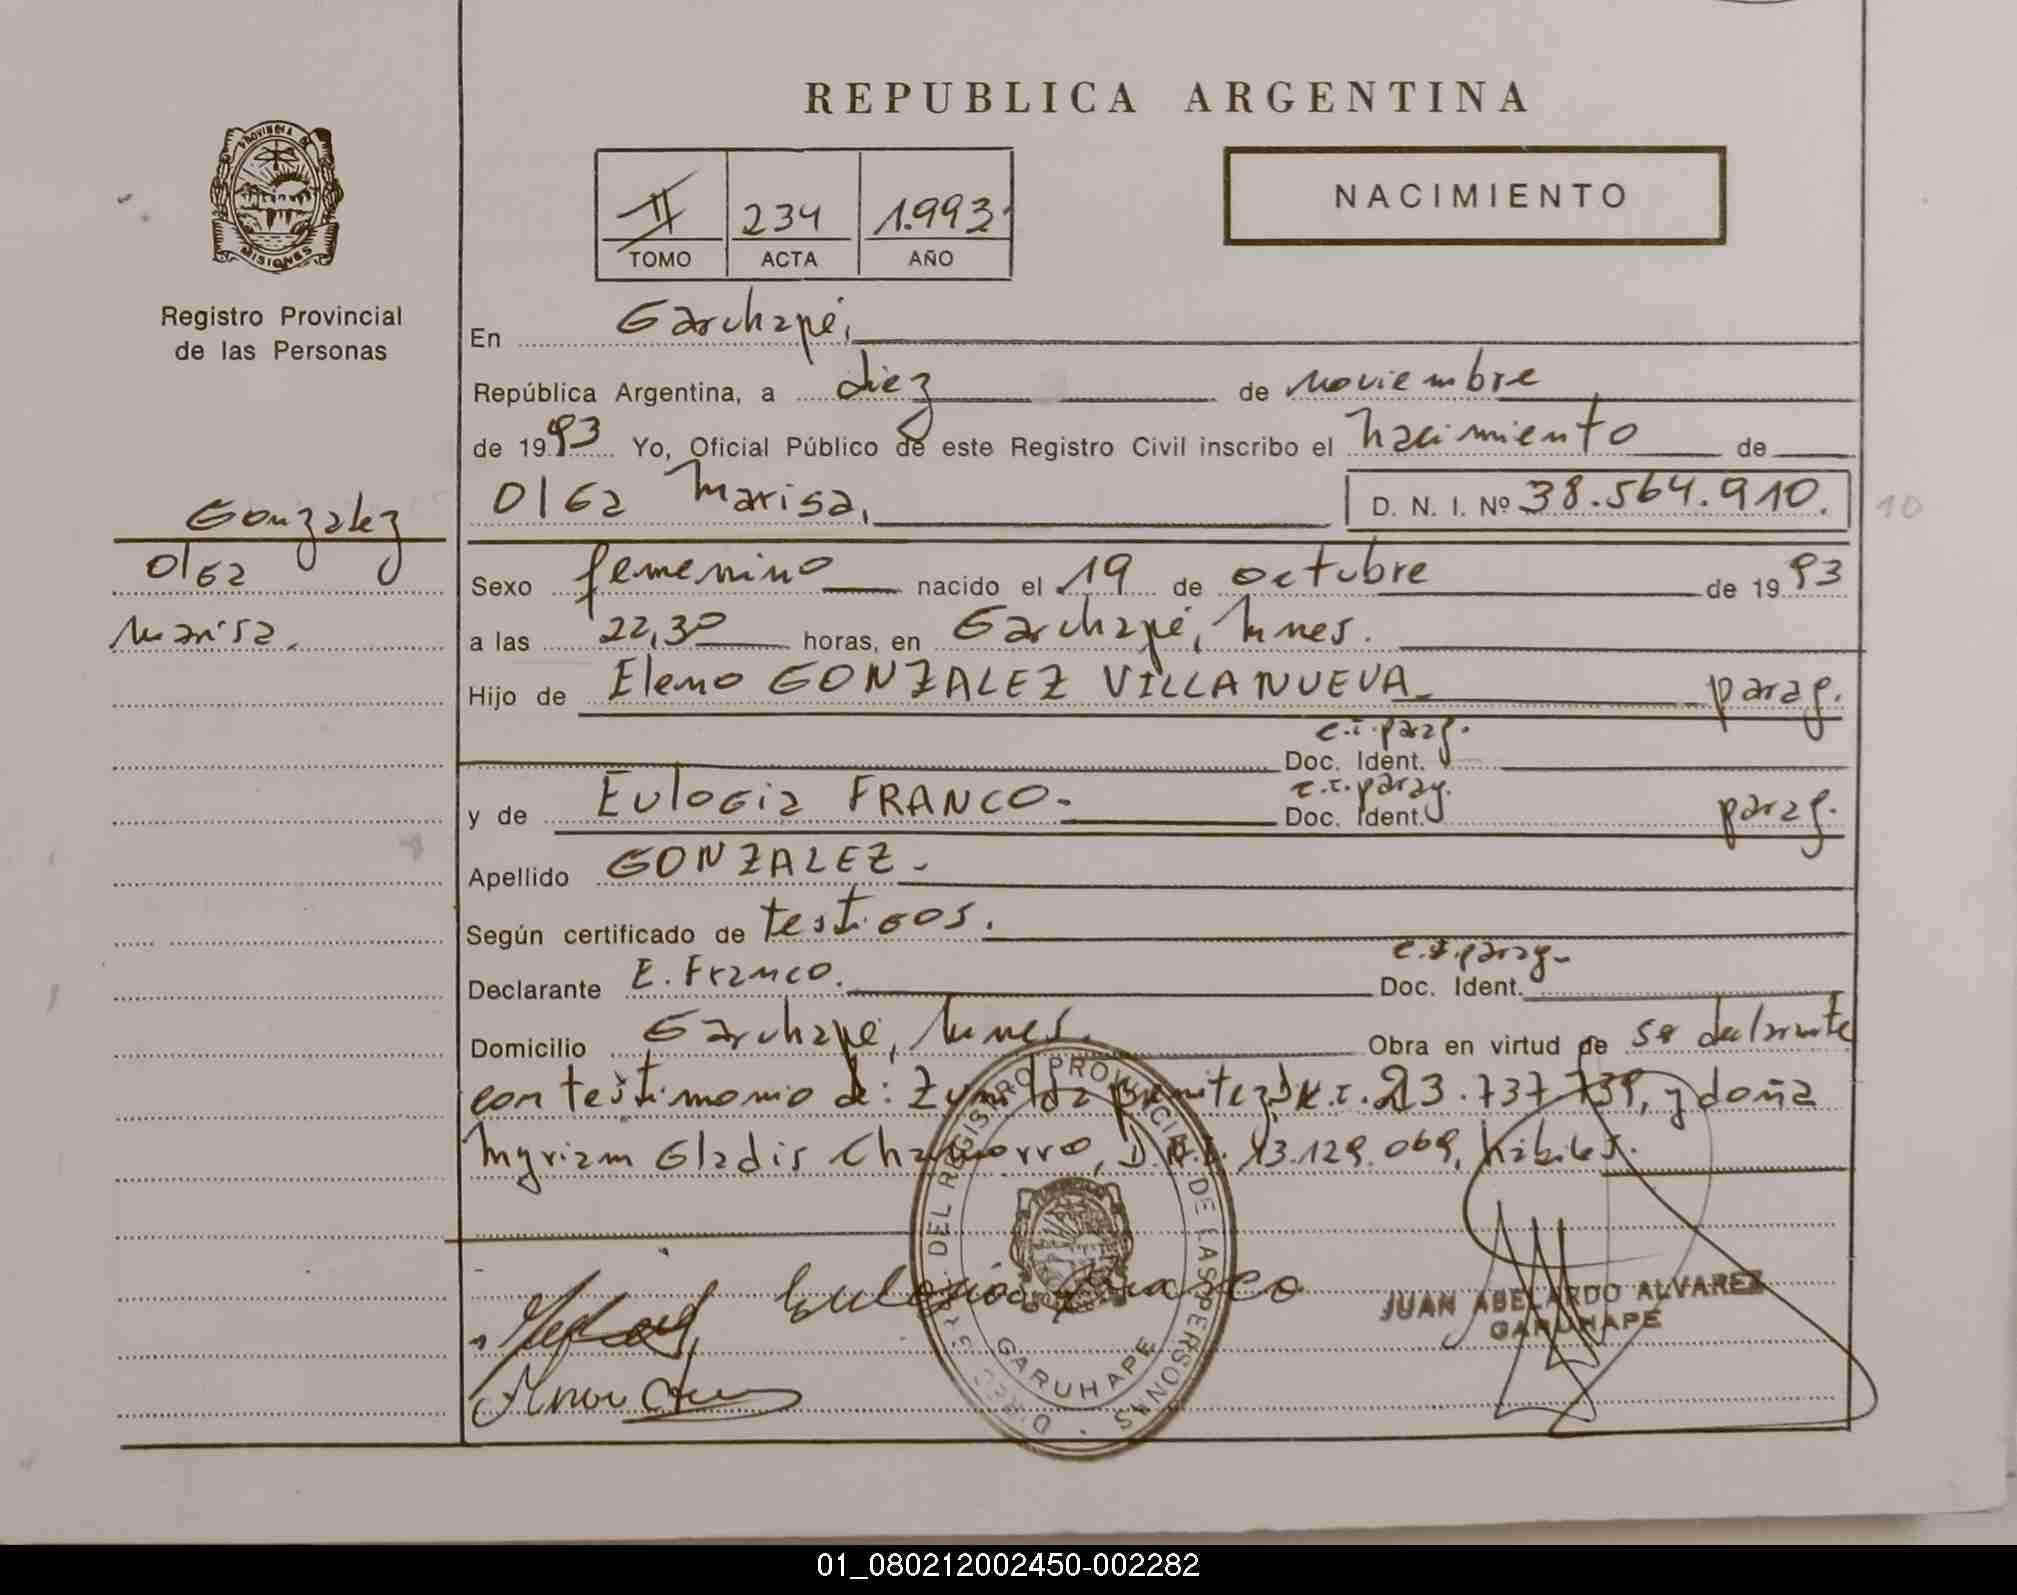 REPUBLICA ARGENTINA
PROVINCIA DE
MISIONES
Registro Provincial
de las Personas
II 234 1.993
TOMO ACTA AÑO
NACIMIENTO
En Garuhapé,
República Argentina, a diez de noviembre
de 1993 Yo, Oficial Público de este Registro Civil inscribo el nacimiento de
Olga Marisa, D. N. I. Nº 38.564.910.
10
Gonzalez
Olga
Marisa.
Sexo femenino nacido el 19 de octubre de 1993
a las 22,30 horas, en Garuhapé, Mnes.
Hijo de Eleno GONZALEZ VILLANUEVA parag.
Doc. Ident. c.i. parag.
y de Eulogia FRANCO- Doc. Ident. c.i. parag. parag.
Apellido GONZALEZ-
Según certificado de testigos.
Declarante E. Franco. Doc. Ident. c.i. parag-
Domicilio Garuhapé, Mnes. Obra en virtud de ser declarante
con testimonio de: Benitez, 23.737.739, y doña
Myriam Gladis Chamorro, D.N.I. 13.129.069, hábiles.
DEL REGISTRO PROVINCIAL DE LAS PERSONAS
GARUHAPE
Eulogia Franco
JUAN ABELARDO ALVAREZ
GARUHAPE
01_080212002450-002282